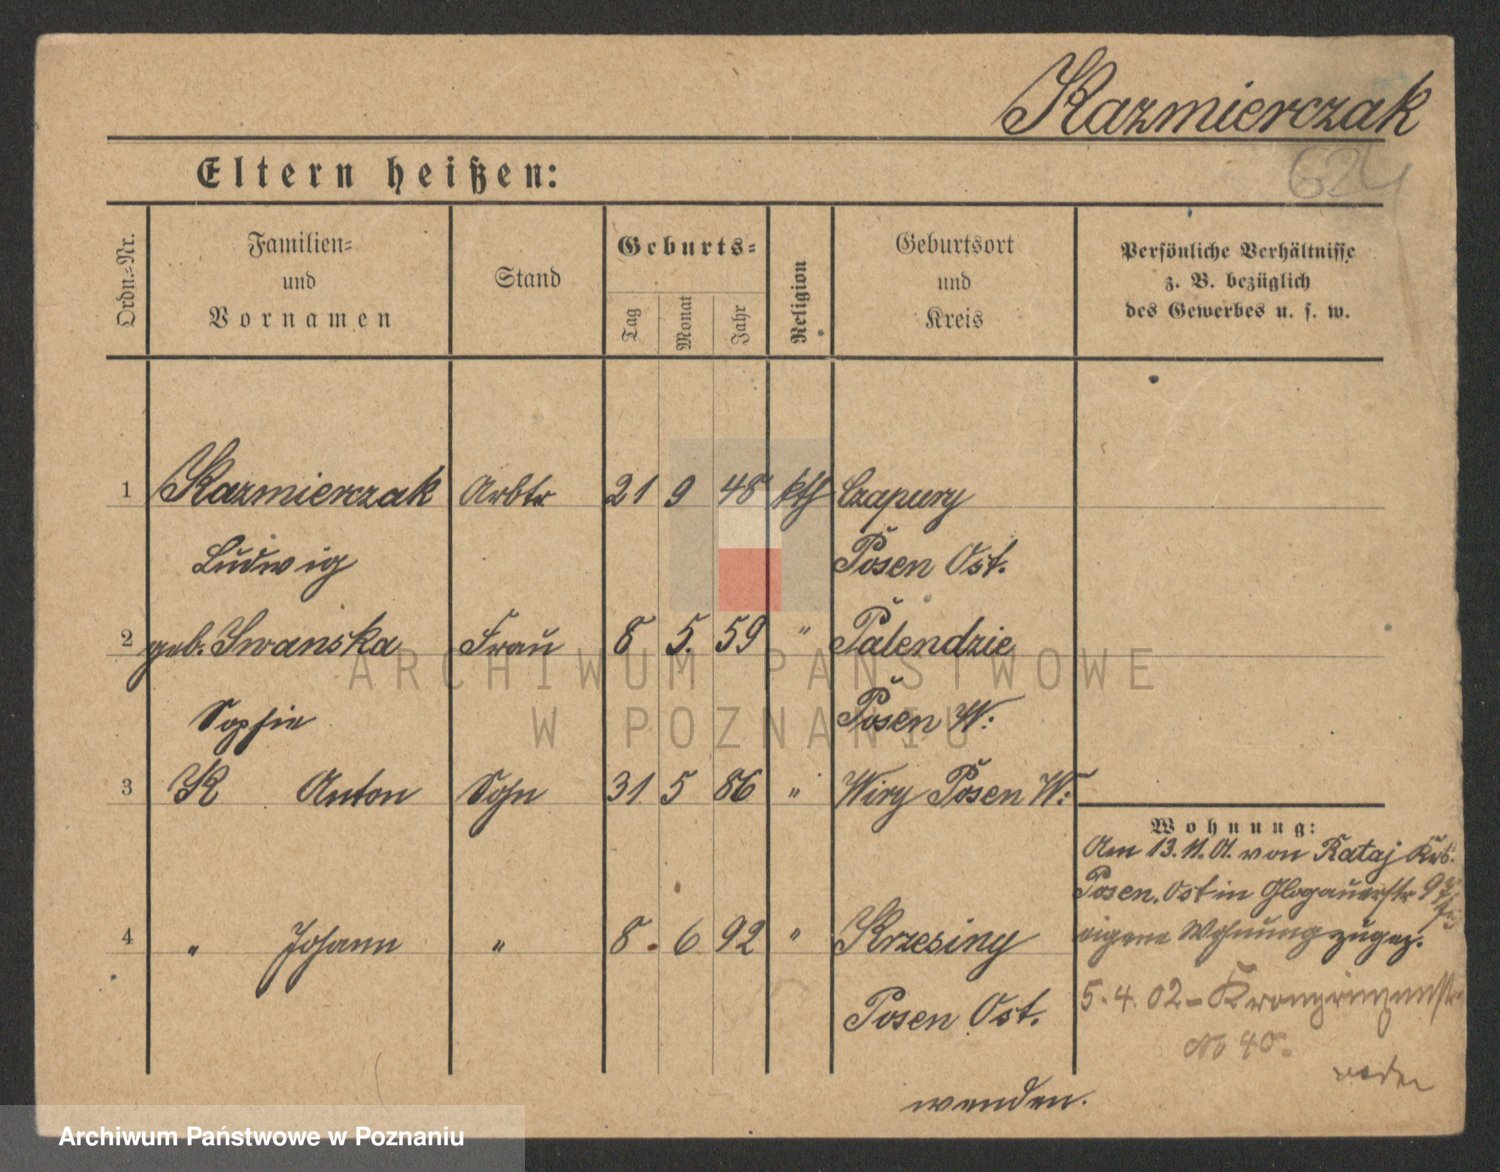 Kazmierczak
624
Eltern heißen:
Ordn.-Nr.
Familien-
und
Vornamen
Stand
Geburts-
Tag
Monat
Jahr
Religion
Geburtsort
und
Kreis
Persönliche Verhältnisse
z. B. bezüglich
des Gewerbes u. s. w.
1 Kazmierczak Arbtr 21 9 48 kth Czapury
Ludwig Posen Ost.
2 geb. Iwanska Frau 8 5. 59 " Palendzie
Sophie Posen W:
3 K Anton Sohn 31 5 86 " Wiry Posen W:
4 " Johann " 8. 6 92 " Krzesiny
Posen Ost.
Wohnung:
Am 13.11.01. von Rataj Krs.
Posen. Ost in Glogauerstr
eigene Wohnung zugez.
5.4.02 – Kronprinzenstr.
No 40.
wenden.
ARCHIWUM PAŃSTWOWE
W POZNANIU
Archiwum Państwowe w Poznaniu